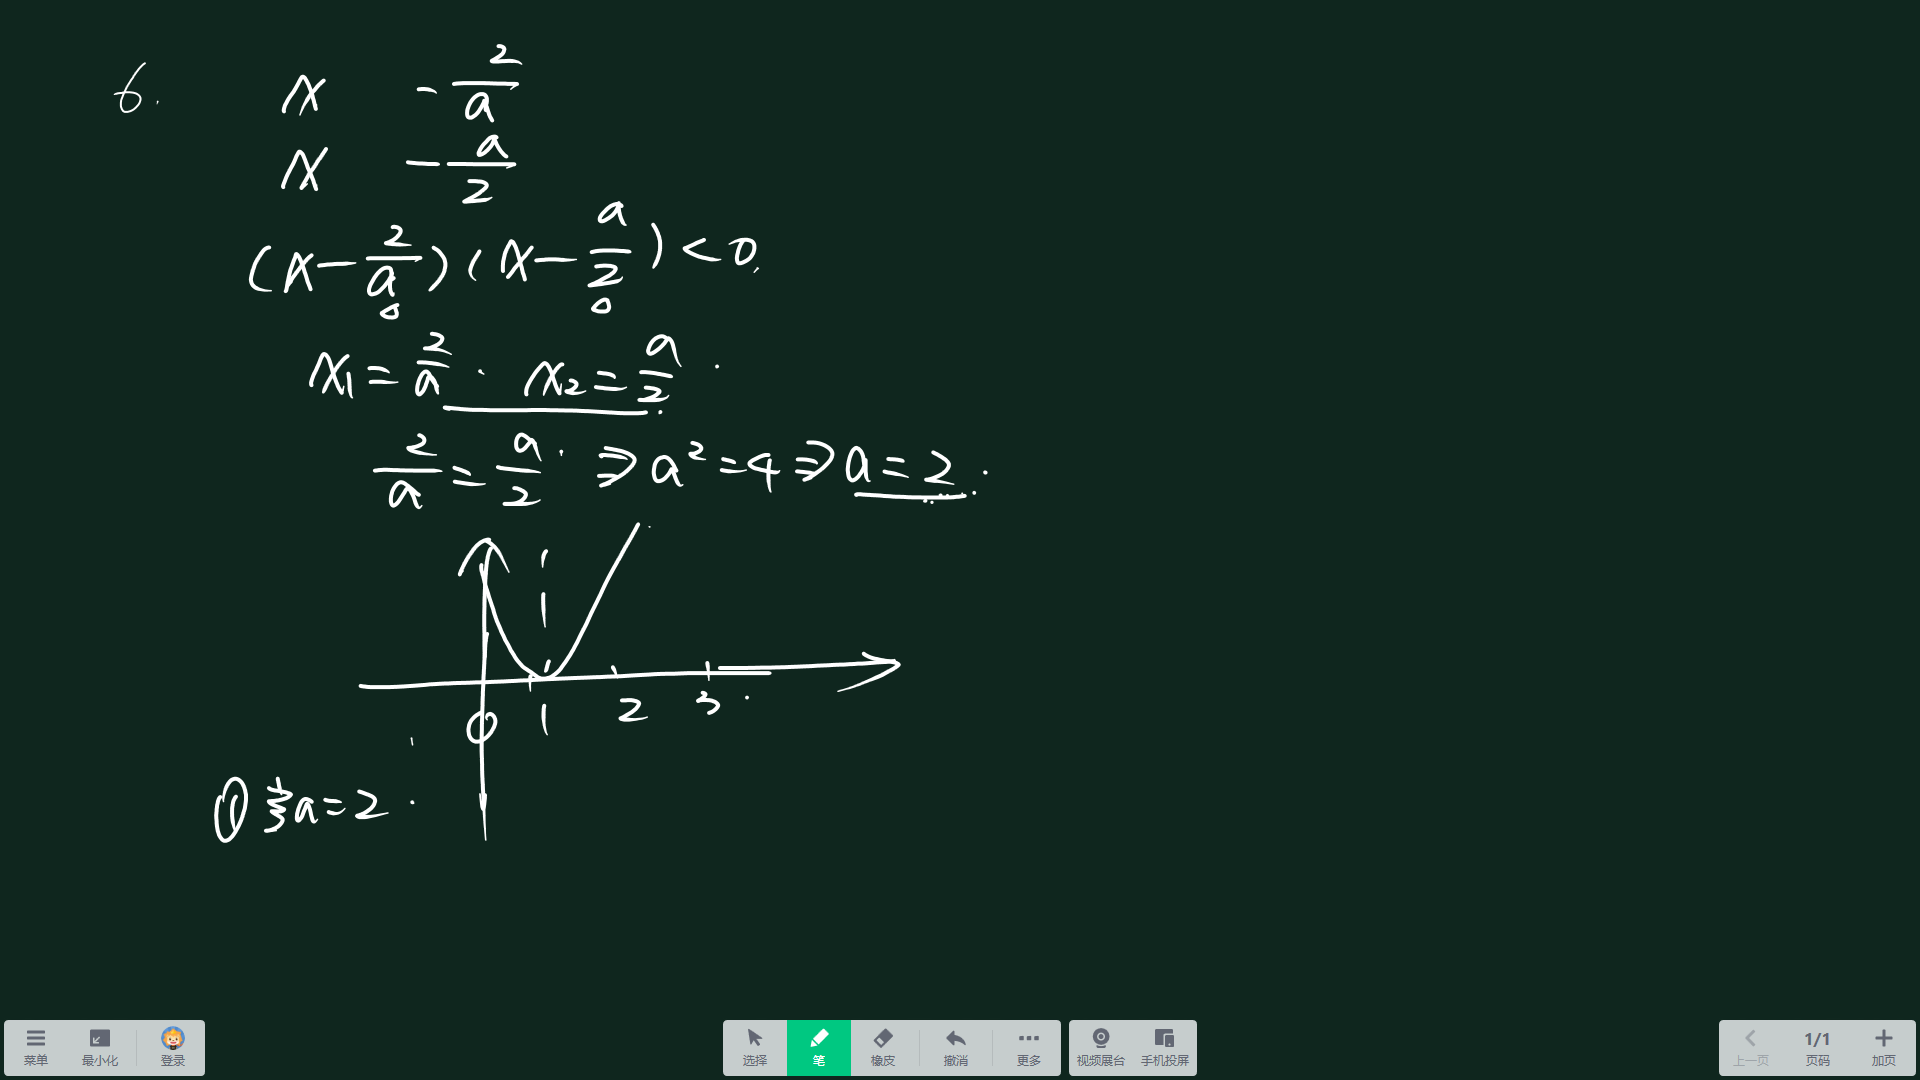 6.
x -2/a
x -a/2
(x-2/a)(x-a/2)<0.
x₁=2/a. x₂=a/2.
2/a=a/2. ⇒a²=4⇒a=2.
0 1 2 3
① 当a=2.
菜单 最小化 登录 选择 笔 橡皮 撤消 更多 视频展台 手机投屏 上一页 1/1 页码 加页